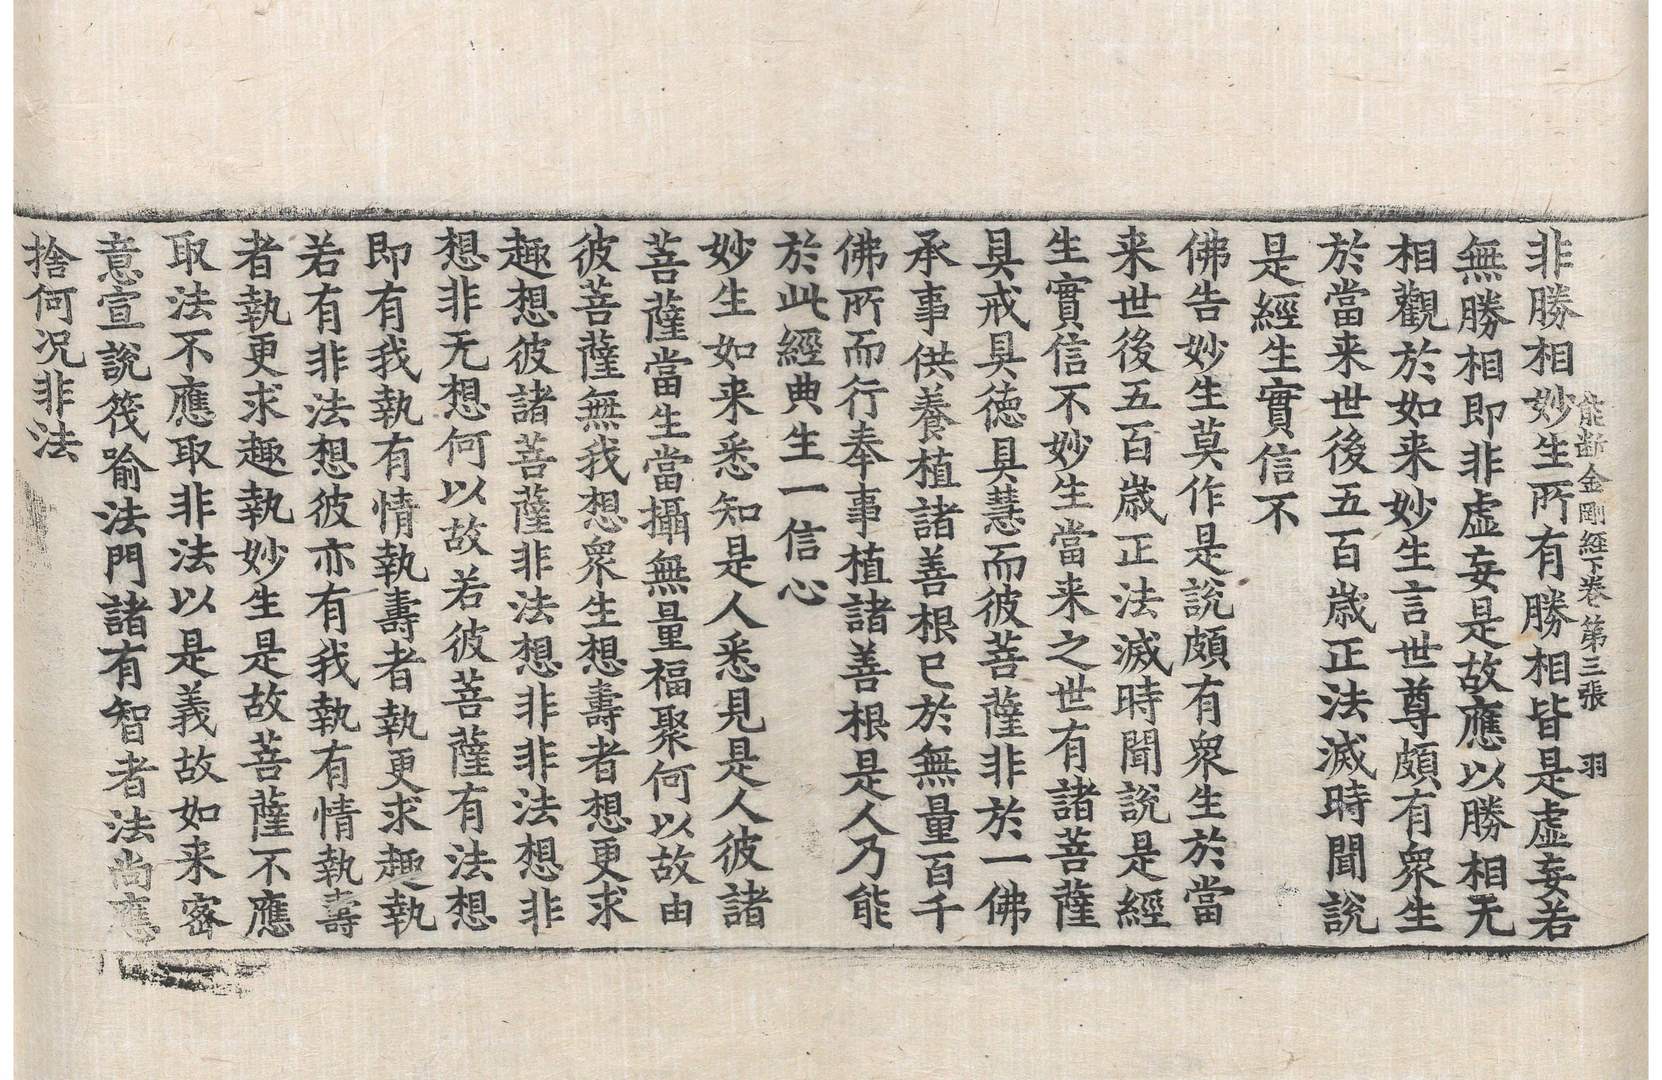 能斷金剛經下卷第三張 羽
非勝相妙生所有勝相皆是虛妄若
無勝相即非虛妄是故應以勝相无
相觀於如来妙生言世尊頗有衆生
於當来世後五百歲正法滅時聞說
是經生實信不
佛告妙生莫作是說頗有衆生於當
来世後五百歲正法滅時聞說是經
生實信不妙生當来之世有諸菩薩
具戒具德具慧而彼菩薩非於一佛
承事供養植諸善根已於無量百千
佛所而行奉事植諸善根是人乃能
於此經典生一信心
妙生如来悉知是人悉見是人彼諸
菩薩當生當攝無量福聚何以故由
彼菩薩無我想衆生想壽者想更求
趣想彼諸菩薩非法想非非法想非
想非无想何以故若彼菩薩有法想
即有我執有情執壽者執更求趣執
若有非法想彼亦有我執有情執壽
者執更求趣執妙生是故菩薩不應
取法不應取非法以是義故如来密
意宣說筏喻法門諸有智者法尚應
捨何况非法